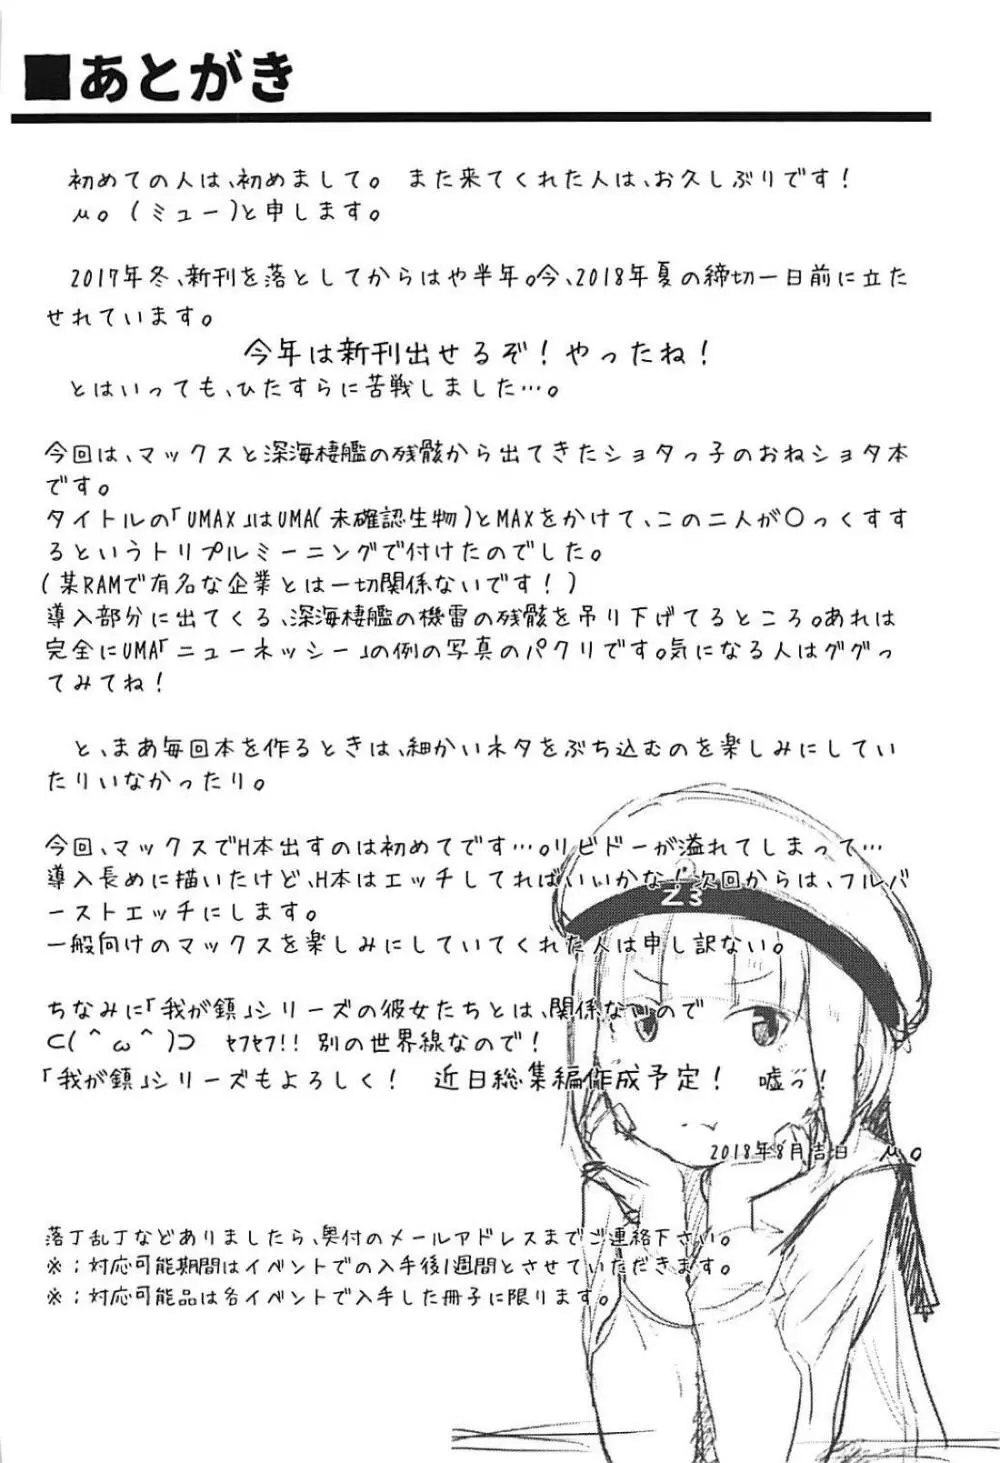 ■あとがき
初めての人は、初めまして。 また来てくれた人は、お久しぶりです!
μ。(ミュー)と申します。
2017年冬、新刊を落としてからはや半年。今、2018年夏の締切一日前に立た
せれています。
今年は新刊出せるぞ!やったね!
とはいっても、ひたすらに苦戦しました…。
今回は、マックスと深海棲艦の残骸から出てきたショタっ子のおねショタ本
です。
タイトルの「UMAX」はUMA(未確認生物)とMAXをかけて、この二人が〇っくすす
るというトリプルミーニングで付けたのでした。
(某RAMで有名な企業とは一切関係ないです!)
導入部分に出てくる、深海棲艦の機雷の残骸を吊り下げてるところ。あれは
完全にUMA「ニューネッシー」の例の写真のパクリです。気になる人はググっ
てみてね!
と、まあ毎回本を作るときは、細かいネタをぶち込むのを楽しみにしてい
たりいなかったり。
今回、マックスでH本出すのは初めてです…。リビドーが溢れてしまって…
導入長めに描いたけど、H本はエッチしてればいいかな!次回からは、フルバ
ーストエッチにします。
一般向けのマックスを楽しみにしていてくれた人は申し訳ない。
Z3
ちなみに「我が鎮」シリーズの彼女たちとは、関係ないので
⊂(＾ω＾)⊃ ｾﾌｾﾌ!! 別の世界線なので!
「我が鎮」シリーズもよろしく! 近日総集編作成予定! 嘘っ!
2018年8月吉日 μ。
落丁乱丁などありましたら、奥付のメールアドレスまでご連絡下さい。
※:対応可能期間はイベントでの入手後1週間とさせていただきます。
※:対応可能品は各イベントで入手した冊子に限ります。